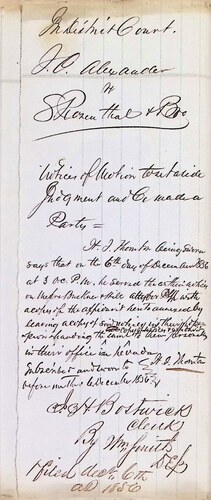 In District Court.
J. C. Alexander
vs
S. Rosenthal & Bro
Notices of Motion to set aside
Judgment and be made a
Party =
H. I. Thornton being sworn
says that on the 6th day of December 1856
at 3 oc. P.M. he served the within notice
on Messrs attys for Plff with
a copy of the affidavit hereto annexed by
leaving a copy of
the same to them personally
in their office in Nevada
Subscribed and sworn to H. I. Thornton
before me this 6 December 1856
J. H. Bostwick
Clerk
By Wm Smith
Dep
Filed Decr 6th
AD 1856